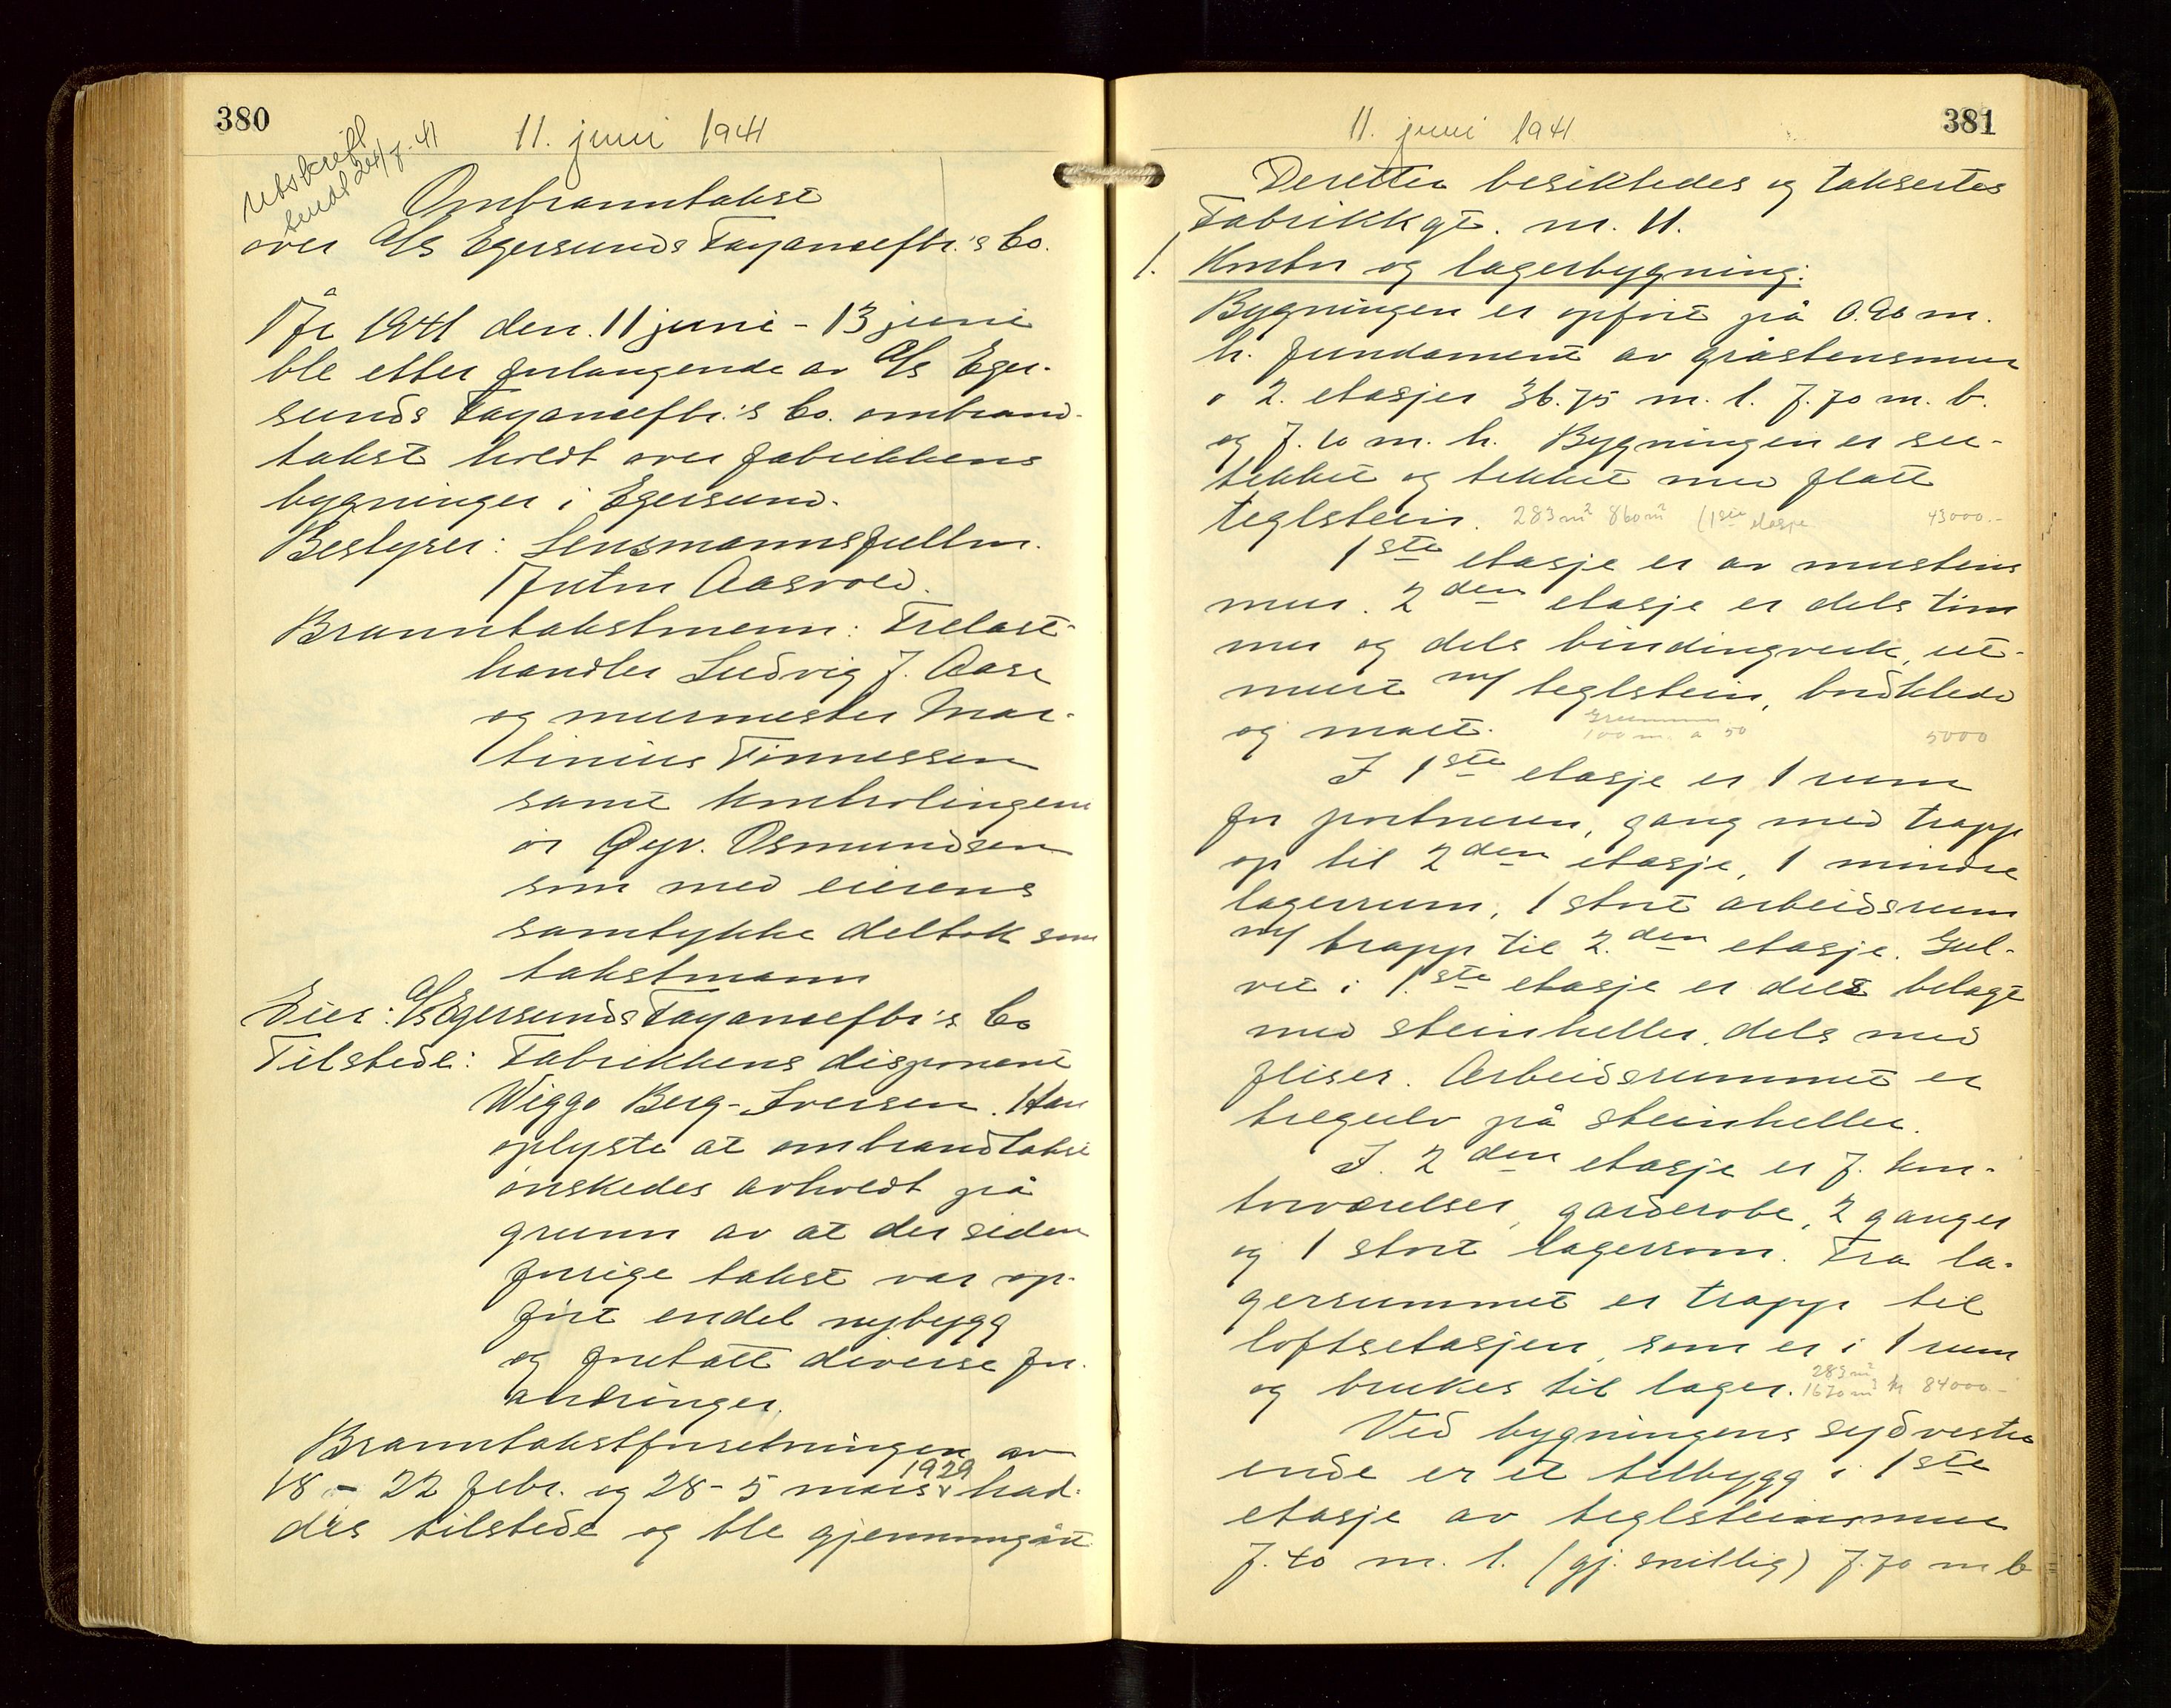 380
11. juni 1941
Utskrift
sendt 24/7-41
Ombranntakst
over A/S Egersunds Fayancefbr.'s Co.
År 1941 den. 11 juni - 13 juni
ble etter forlangende av A/S Eger-
sunds Fayancefbr.'s Co. ombrand-
takst holdt over fabrikkens
bygninger i Egersund.
Bestyrer: Lensmannsfullm.
Aasvold.
Branntakstmenn: Trelast-
handler Ludvig J. Aase
og murmester Mar-
tinius Tønnessen
samt kontrolingeni
ør Øyv. Osmundsen
som med eierens
samtykke deltok som
takstmann
Eier: A/S Egersunds Fayancefbr's Co
Tilstede: Fabrikkens disponent
Wiggo Berg-Iversen. Han
oplyste at ombrandtakst
ønskedes avholdt på
grunn av at der siden
forrige takst var op-
ført endel nybygg
og foretatt diverse for-
andringer.
Branntakstforretningen av
18 - 22 febr. og 28 - 5 mars 1929 had-
des tilstede og ble gjennomgått
381
11. juni 1941
Deretter besiktedes og taksertes
Fabrikkgt. nr. 11.
1. Kontor og lagerbygning:
Bygningen er opført på 0.90 m.
h. fundament av gråstensmur
i 2. etasjer 36.75 m. l. 7.70 m. b.
og 7.10 m. h. Bygningen er su-
tekket og tekket med flatt
teglstein. 283 m² 860 m³ (1ste etasje 43000.-
1ste etasje er av murstens
mur. 2den etasje er dels tøm
mer og dels bindingverk, ut-
murt m/ teglstein, bordkledd
og malt. 100 m. a 50 5000
I 1ste etasje er 1 rum
for portneren, gang med trapp
op til 2den etasje, 1 mindre
lagerrum, 1 stort arbeidsrum
m/ trapp til 2.den etasje. Gul-
vet i 1.ste etasje er dels belagt
med steinheller, dels med
fliser. Arbeidsrummet er
tregulv på steinheller.
I. 2den etasje er 7. kon-
torværelser, garderobe, 2 ganger
og 1 stort lagerrom. Fra la-
gerrummet er trapp til
loftsetasjen, som er i 1 rum
og brukes til lager. 283 m² 1670 m³ kr 84000.-
Ved bygningens sydvestre
ende er et tilbygg i 1ste
etasje av teglsteinsmur
7.40 m. l. (gj. snittlig) 7.70 m b